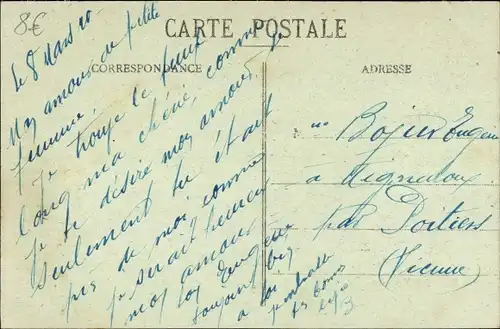 8€
CARTE POSTALE
CORRESPONDANCE
ADRESSE
Le 8 Mars 20
My amour de petite
femme.
Je trouve le temps
long ma chérie, comme
Je te désire mon amour
seulement tu étais
près de moi comme
je serait heureux
mon amour
ton Eugène
toujours
a toi
Eugène
à Vigneroux
par Poitiers
(Vienne)